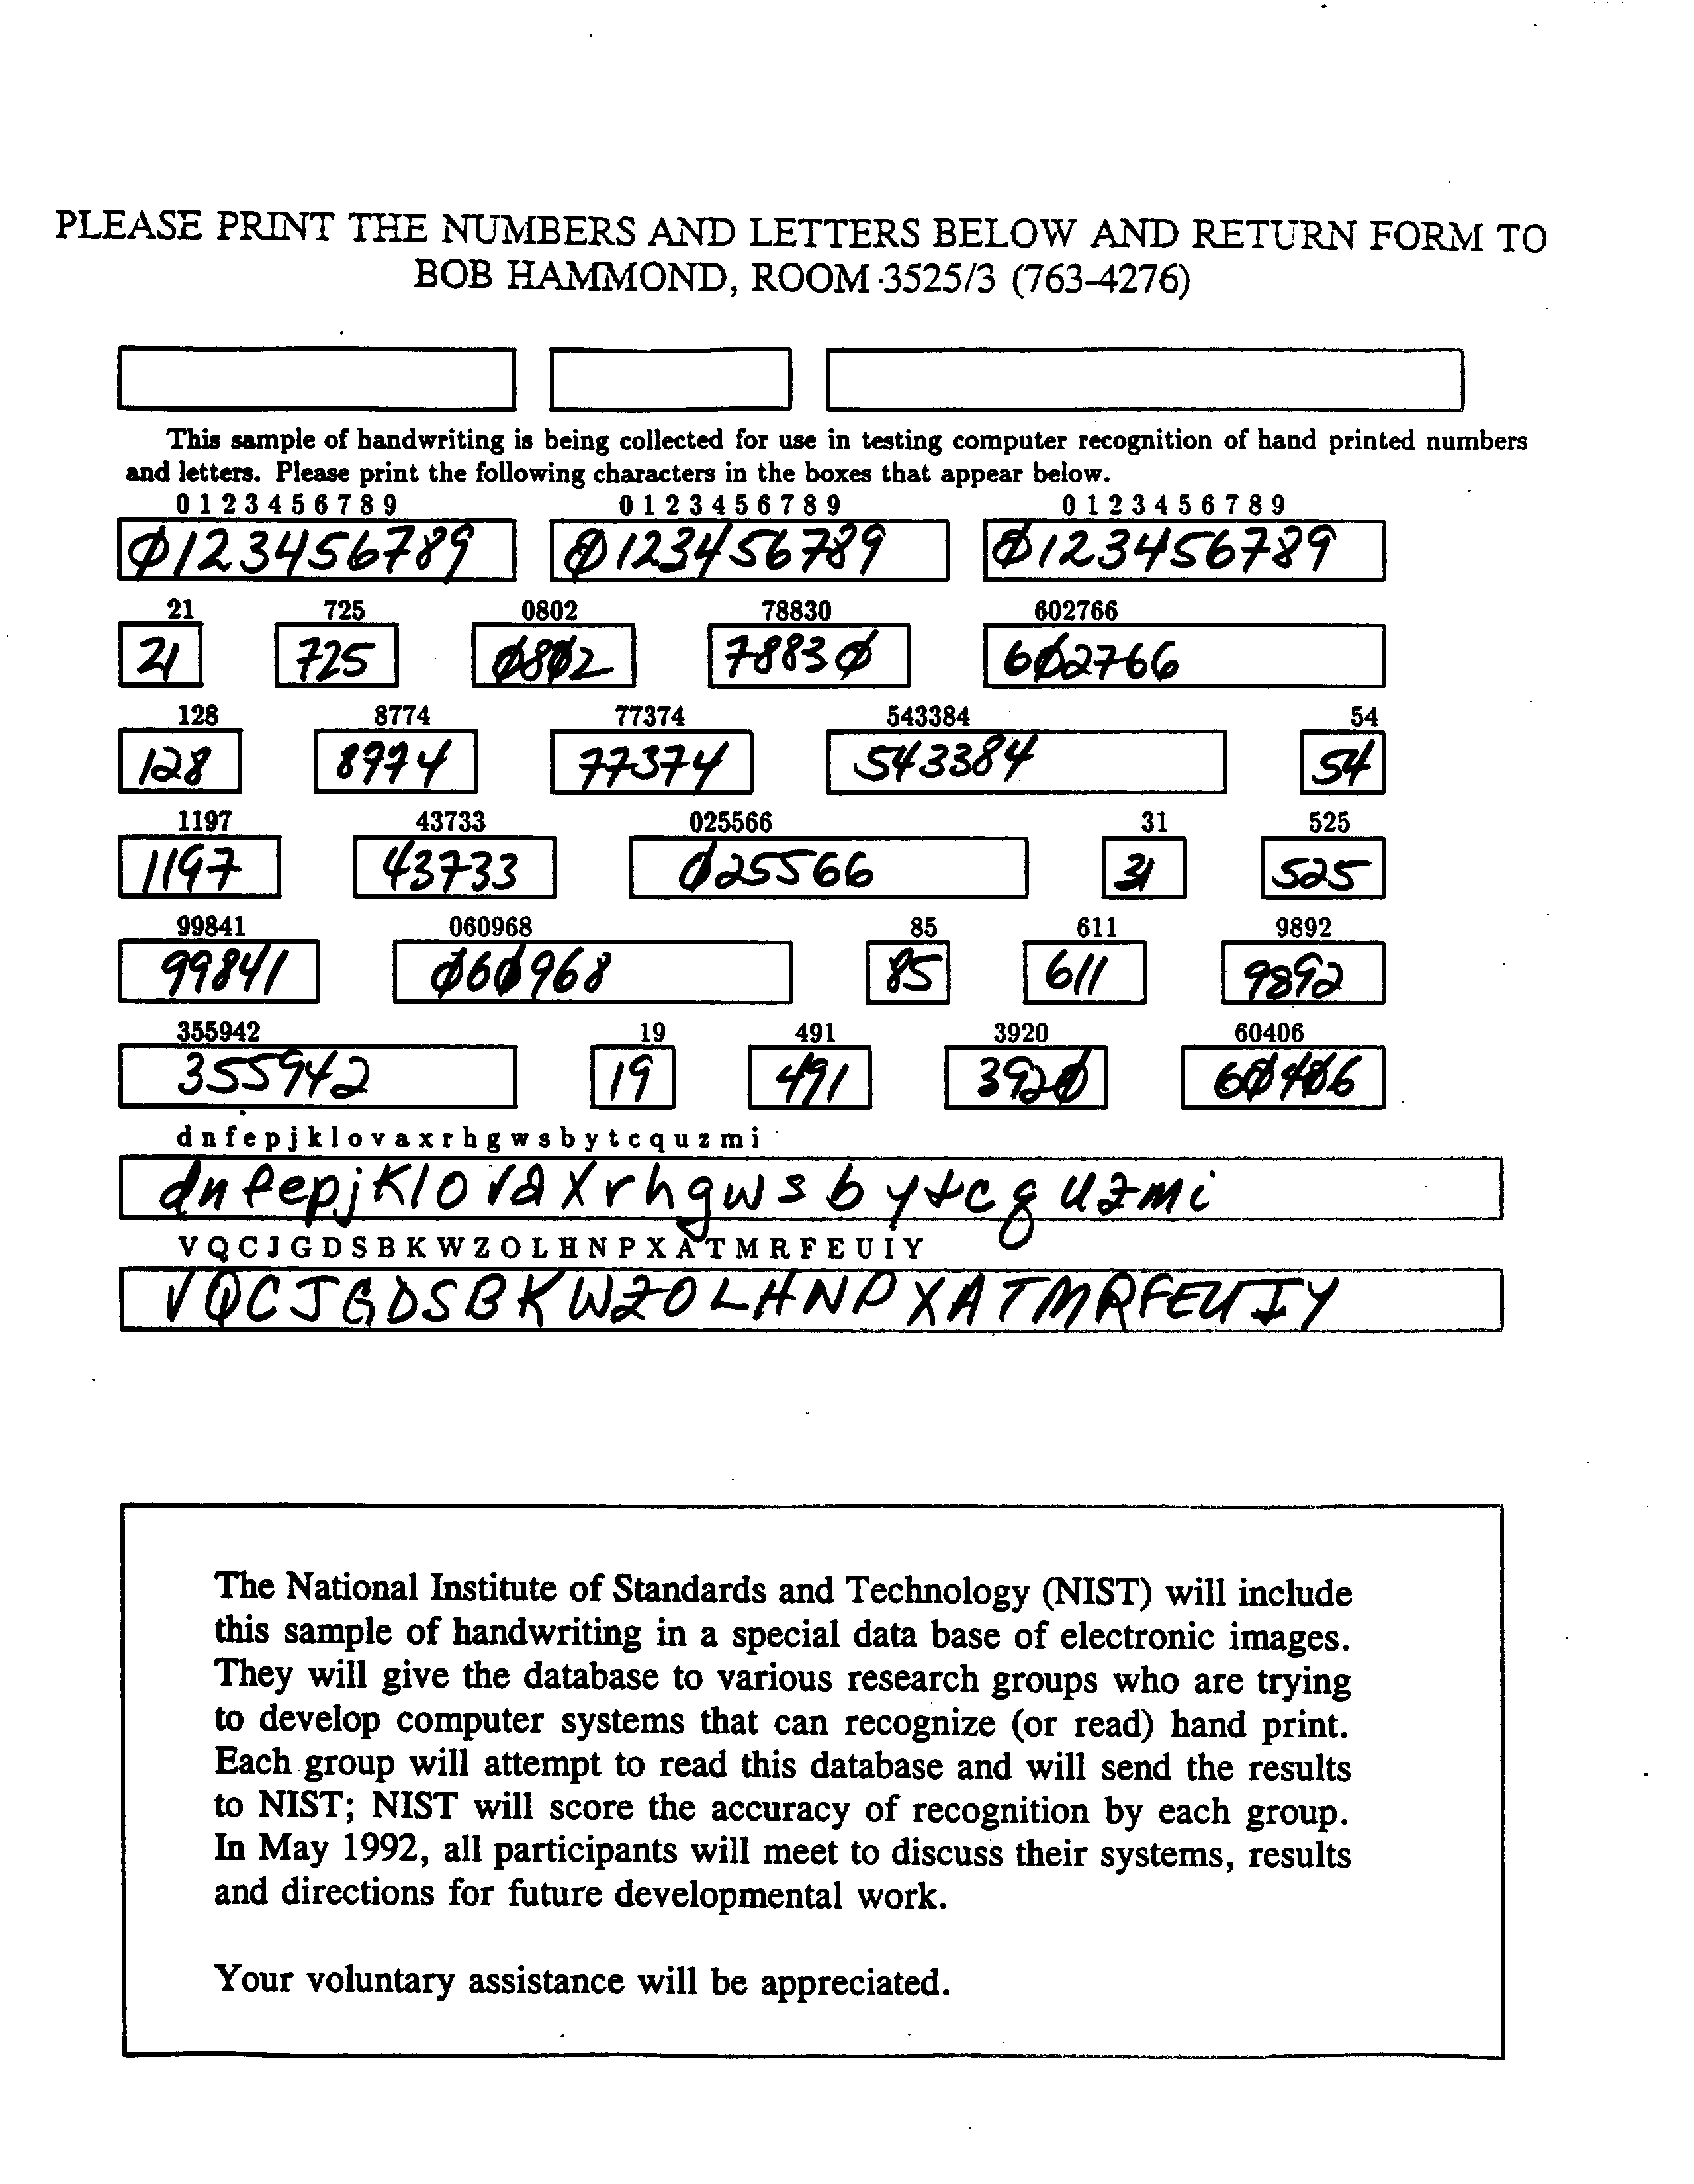 PLEASE PRINT THE NUMBERS AND LETTERS BELOW AND RETURN FORM TO
BOB HAMMOND, ROOM 3525/3 (763-4276)
This sample of handwriting is being collected for use in testing computer recognition of hand printed numbers
and letters. Please print the following characters in the boxes that appear below.
0 1 2 3 4 5 6 7 8 9 0 1 2 3 4 5 6 7 8 9 0 1 2 3 4 5 6 7 8 9
0123456789 0123456789 0123456789
21 725 0802 78830 602766
21 725 0802 78830 602766
128 8774 77374 543384 54
128 8774 77374 543384 54
1197 43733 025566 31 525
1197 43733 025566 31 525
99841 060968 85 611 9892
99841 060968 85 611 9892
355942 19 491 3920 60406
355942 19 491 3920 60406
d n f e p j k l o v a x r h g w s b y t c q u z m i
dnfepjklovaxrhgwsbytcquzmi
V Q C J G D S B K W Z O L H N P X A T M R F E U I Y
VQCJGDSBKWZOLHNPXATMRFEUIY
The National Institute of Standards and Technology (NIST) will include
this sample of handwriting in a special data base of electronic images.
They will give the database to various research groups who are trying
to develop computer systems that can recognize (or read) hand print.
Each group will attempt to read this database and will send the results
to NIST; NIST will score the accuracy of recognition by each group.
In May 1992, all participants will meet to discuss their systems, results
and directions for future developmental work.
Your voluntary assistance will be appreciated.